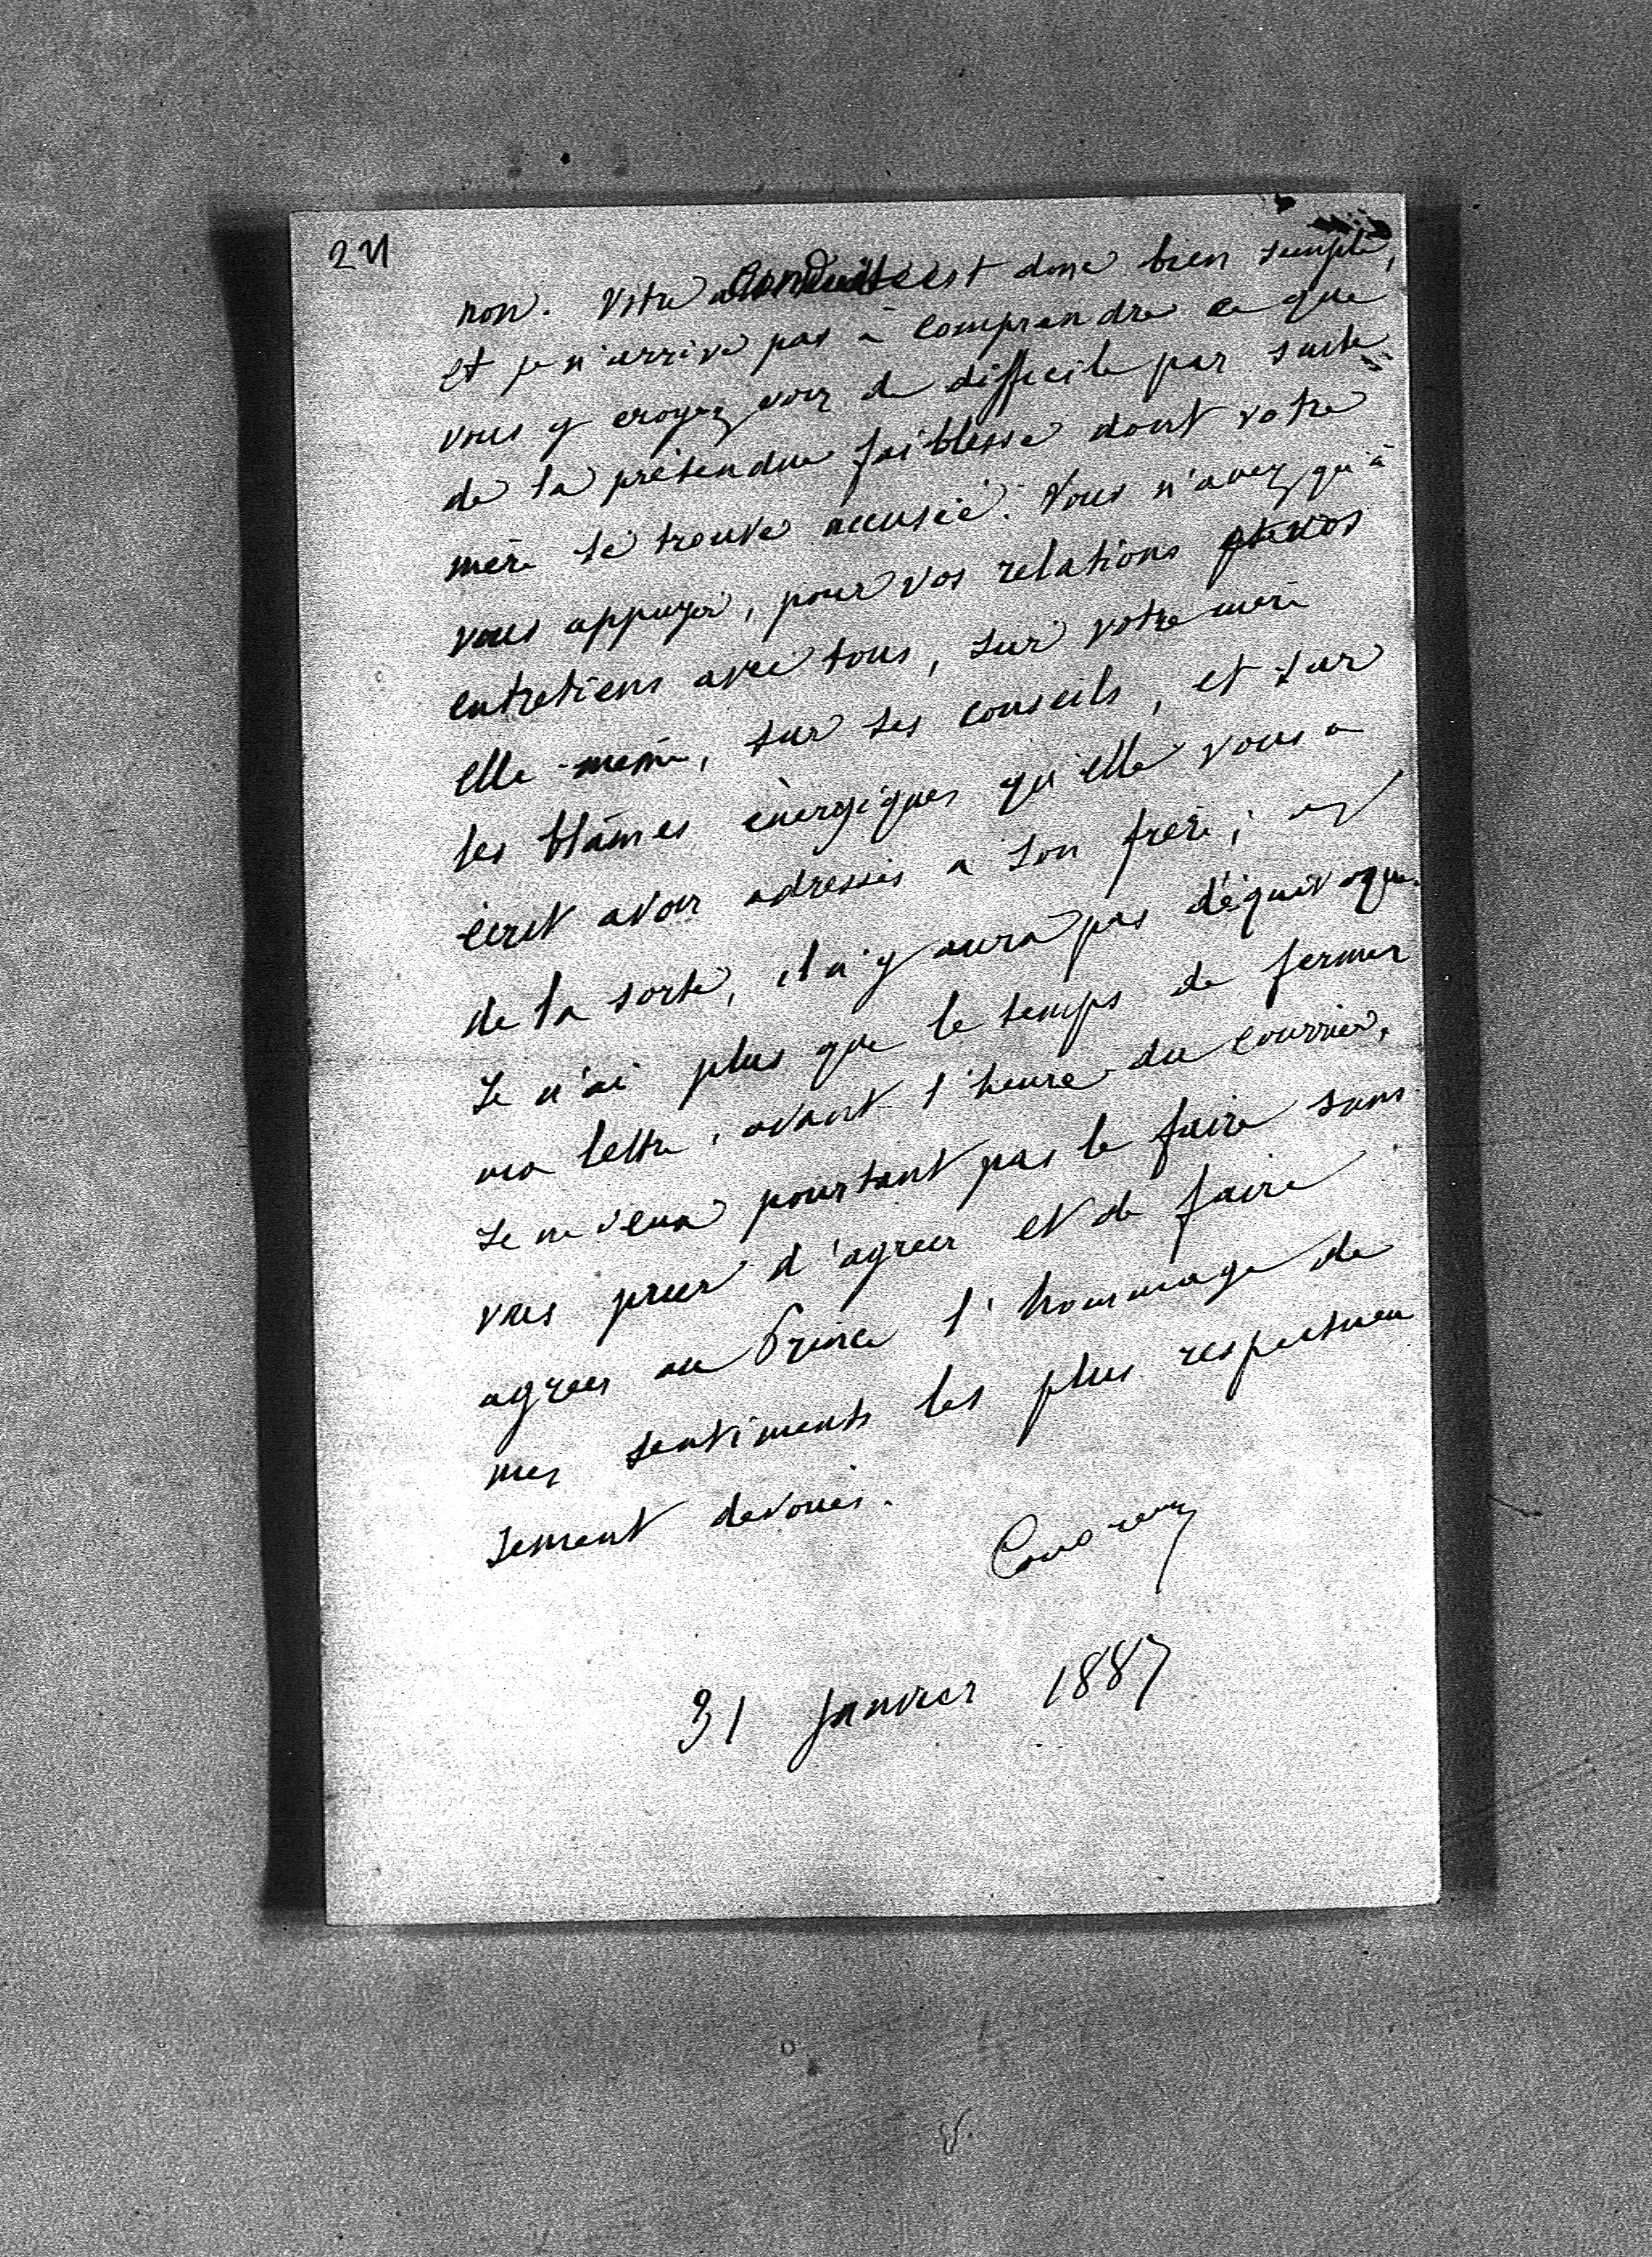 24
non. Votre conduite est donc bien simple,
et je n'arrive pas à comprendre ce que
vous y croyez voir de difficile par suite
de la prétendue faiblesse dont votre
mère se trouve accusée. Vous n'avez qu'à
vous appuyer, pour vos relations et vos
entretiens avec tous, sur votre mère
elle-même, sur ses conseils, et sur
les blâmes énergiques qu'elle vous a
écrit avoir adressés a son frère;
de la sorte, il n'y aura pas d'équivoque.
Je n'ai plus que le temps de fermer
ma lettre, avant l'heure du courrier.
Je ne veux pourtant pas le faire sans
vous prier d'agréer et de faire
agréer au Prince l'hommage de
mes sentiments les plus respectueu
sement dévoués.
31 Janvier 1887